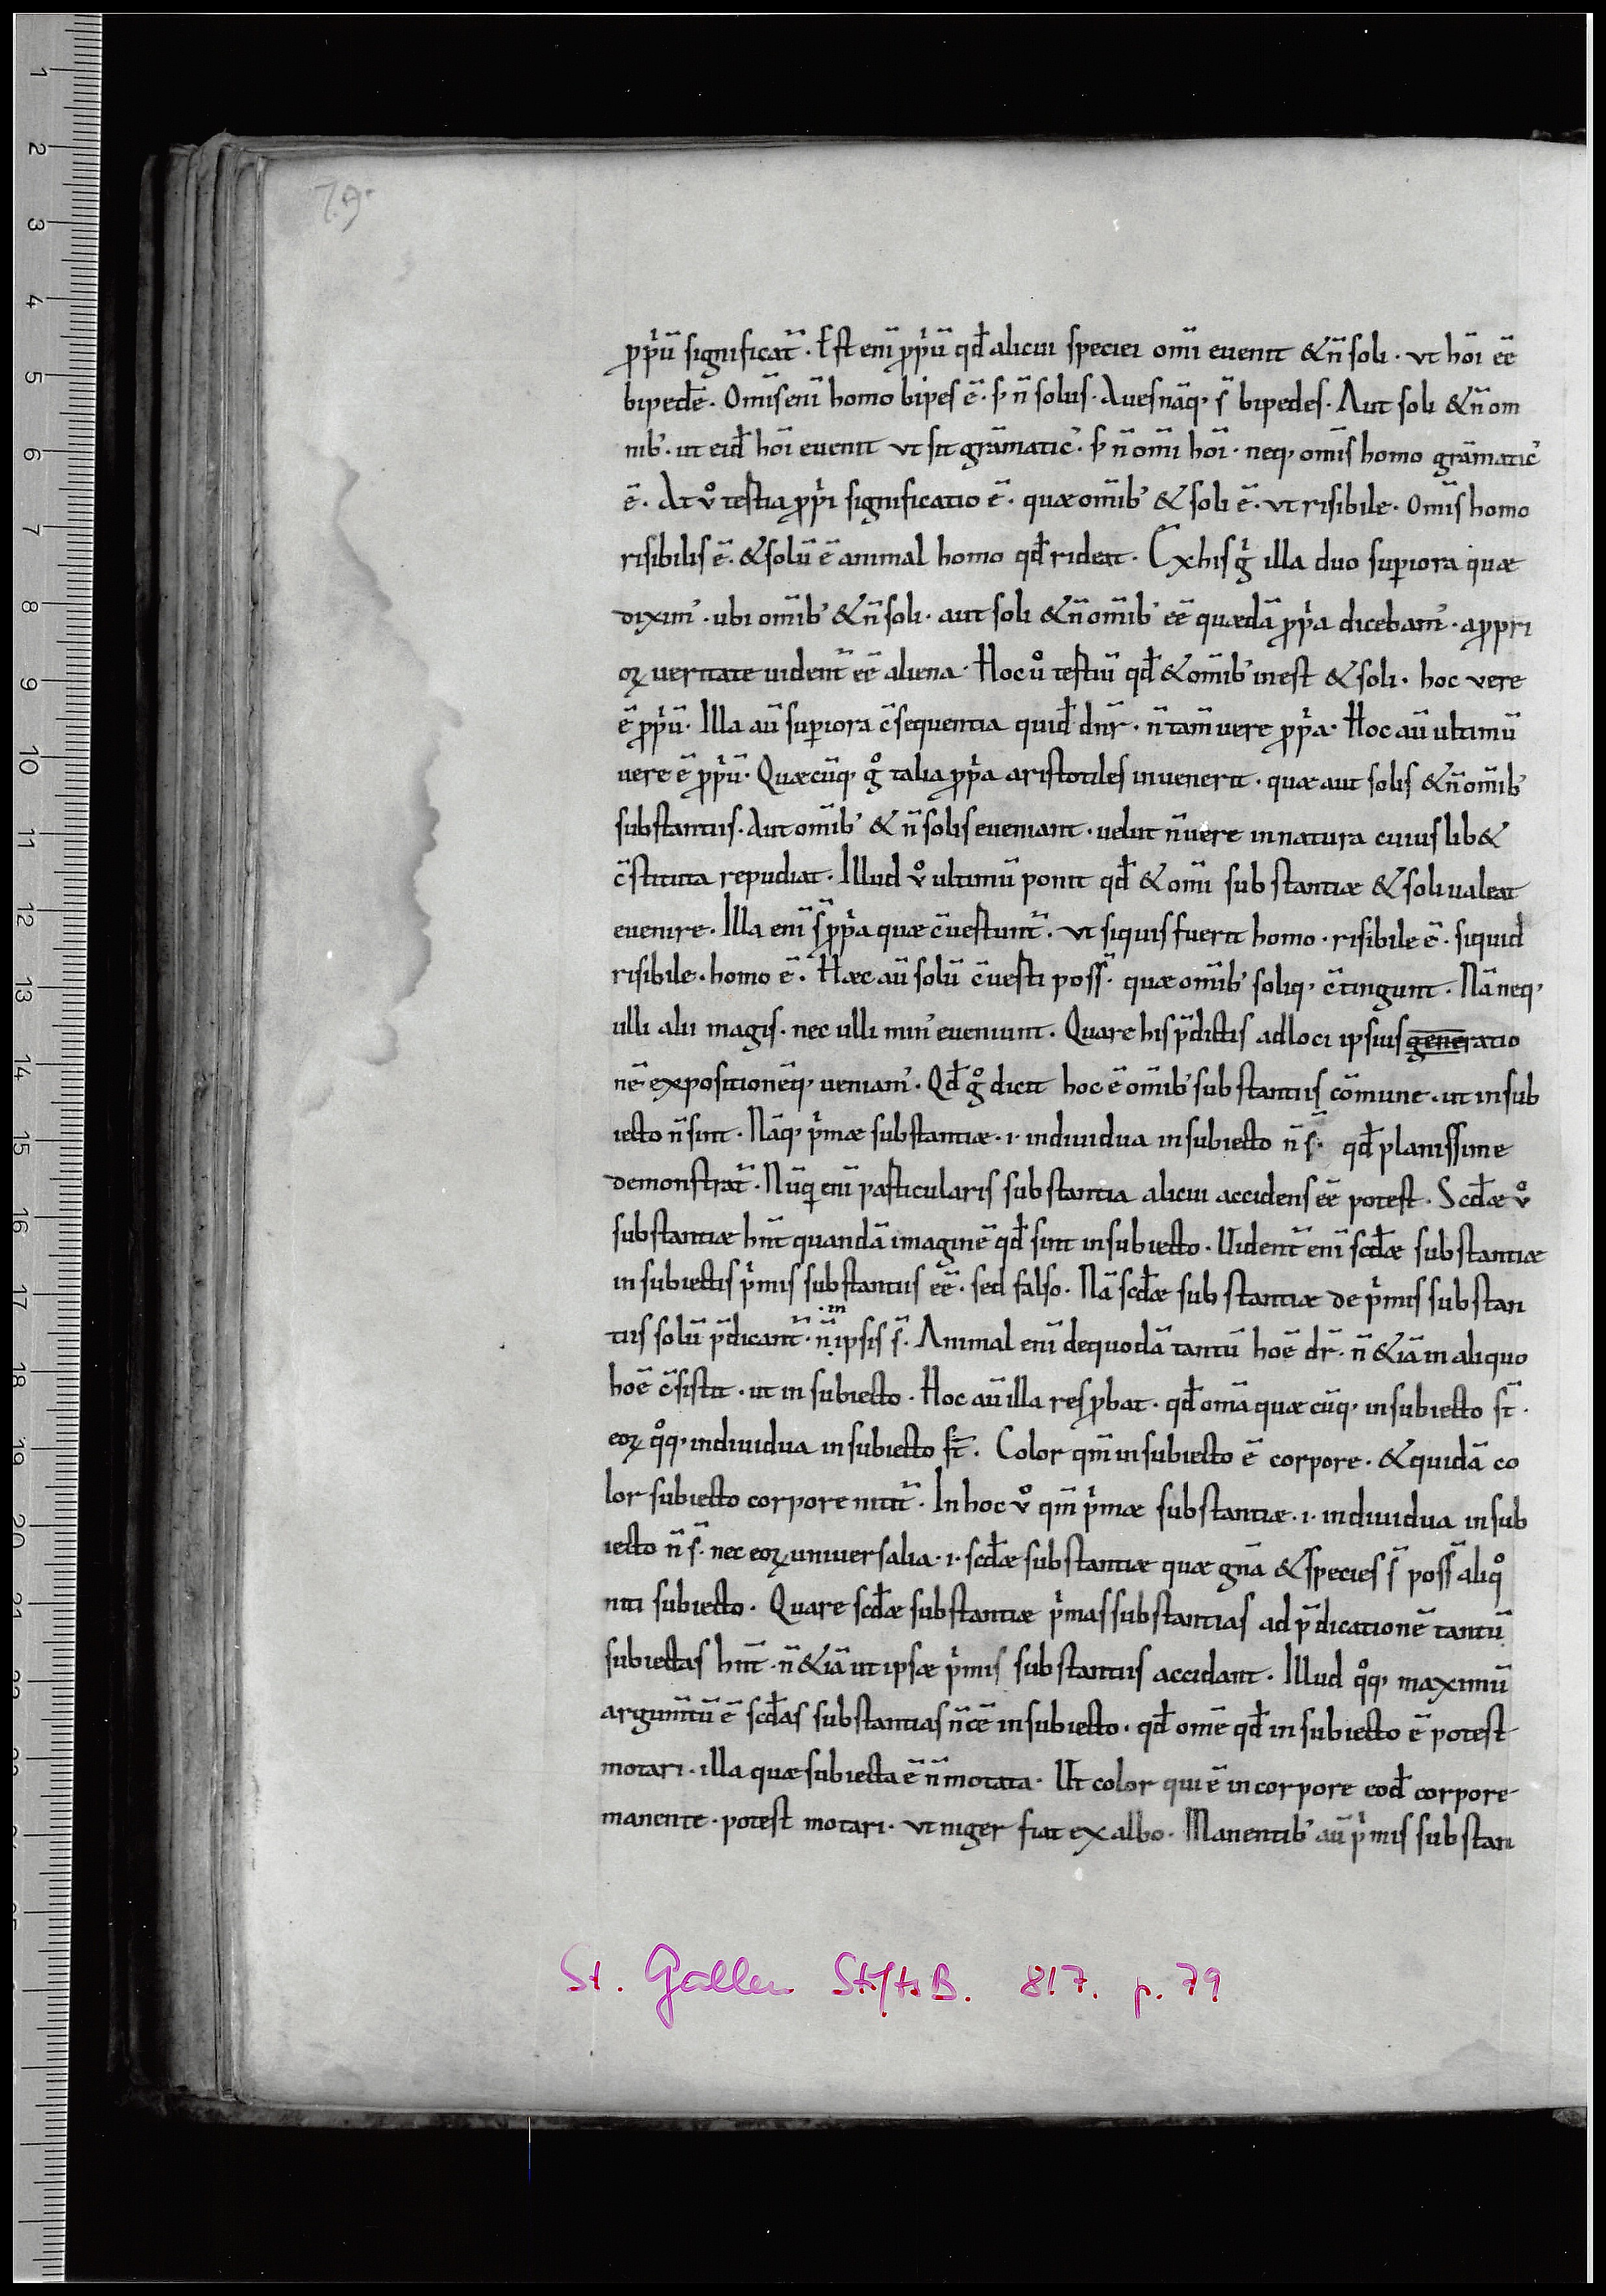 79.
ppͥu̅ significat̅. Est eni̅ ppͥu̅ qđ alicui speciei omi̅ euenit & n̅ soli. vt ho̅i ee̅
bipede̅. Omi̅s eni̅ homo bipes e̅. s; n̅ solus. Aues na̅q; s̅ bipedes. Aut soli & n̅ om
nib'. ut eiđ ho̅i euenit vt sit gra̅matic'. s; n̅ omi̅ ho̅i. neq; omi̅s homo gra̅matic'
e̅. At vͦ testia ppͥi significatio e̅. quæ omi̅b' & soli e̅. vt risibile. Omi̅s homo
risibilis e̅. & solu̅ e̅ animal homo qđ rideat. Ex his gͥ illa duo supiora quæ
diximꝰ. ubi omi̅b' & n̅ soli. aut soli & n̅ omi̅b' ee̅ quæda̅ ppͥa dicebamꝰ. a ppri
oꝝ veritate uident̅ ee̅ aliena. Hoc uͦ testiu̅ qđ & omi̅b' inest & soli. hoc vere
e̅ ppͥu̅. Illa au̅ supiora c̅sequentia quiđ dn̅r. n̅ tam̅ vere ppͥa. Hoc au̅ ultimu̅
vere e̅ ppͥu̅. Quæcu̅q; gͦ talia ppͥa aristotiles inuenerit. quæ aut solis & n̅ omi̅b'
substantiis. Aut omi̅b' & n̅ solis eueniant. velut n̅ vere in natura cuiuslib&
c̅stituta repudiat. Illud vͦ ultimu̅ ponit qđ & omi̅ substantiæ & soli ualeat
euenire. Illa eni̅ s̅ ppͥa quæ c̅uestunt̅. vt siquis fuerit homo. risibile e̅. siquid
risibile. homo e̅. Hæc au̅ solu̅ c̅uesti poss̅. quæ omi̅b' soliq; c̅tingunt. Na̅ neq;
ulli alii magis. nec ulli min' eueniunt. Quare his p̅dictis ad loci ipsius generatio
ne̅ expositione̅q; ueniamꝰ. Qđ gͦ dicit hoc e̅ omi̅b' substantiis co̅mune. ut in sub
iecto n̅ sint. Na̅q; pͥmæ substantiæ .i. indiuidua in subiecto n̅ s̅. qđ planissime
demonstrat̅. Nu̅q; eni̅ pasticularis substantia alicui accidens ee̅ potest. Scđæ vͦ
substantiæ hn̅t quanda̅ imagine̅ qđ sint in subiecto. Uident̅ eni̅ scđæ substantiæ
in subiectis pͥmis substantiis ee̅. sed falso. Na̅ scđæ substantiæ de pͥmis substan
tiis solu̅ p̅dicant̅. n̅ .in ipsis s̅. Animal eni̅ de quoda̅ tantu̅ hoe̅ dr̅. n̅ &ia̅ in aliquo
hoe̅ c̅sistit. ut in subiecto. Hoc au̅ illa res pbat. qđ om̅a quæcu̅q; in subiecto st̅.
eoꝝ qͦq; indiuidua in subiecto st̅. Color qm̅ in subiecto e̅ corpore. & quida̅ co
lor subiecto corpore nitit̅. In hoc vͦ qm̅ pͥmæ substantiæ .i. indiuidua in sub
iecto n̅ s̅. nec eoꝝ uniuersalia .i. scđæ substantiæ quæ gn̅a & species s̅ poss̅ aliqͦ
niti subiecto. Quare scđæ substantiæ pͥmas substantias ad p̅dicatione̅ tantu̅
subiectas hn̅t. n̅ &ia̅ ut ipsæ pͥmis substantiis accidant. Illud qͦq; maximu̅
argum̅tu̅ e̅ scđas substantias n̅ ee̅ in subiecto. qđ ome̅ qđ in subiecto e̅ potest
motari. illa quæ subiecta e̅ n̅ motata. Ut color qui e̅ in corpore eođ corpore
manente. potest motari. vt niger fiat ex albo. Manentib' au̅ pͥmis substan
St. Gallen StiftsB. 817. p. 79